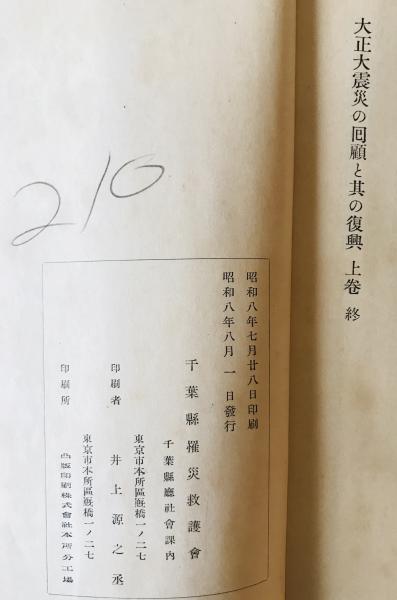 大正大震災の回顧と其の復興 上卷 終
210
昭和八年七月廿八日印刷
昭和八年八月一日發行
千葉縣罹災救護會
千葉縣廳社會課內
東京市本所區厩橋一ノ二七
印刷者 井上源之丞
東京市本所區厩橋一ノ二七
印刷所 凸版印刷株式會社本所分工場